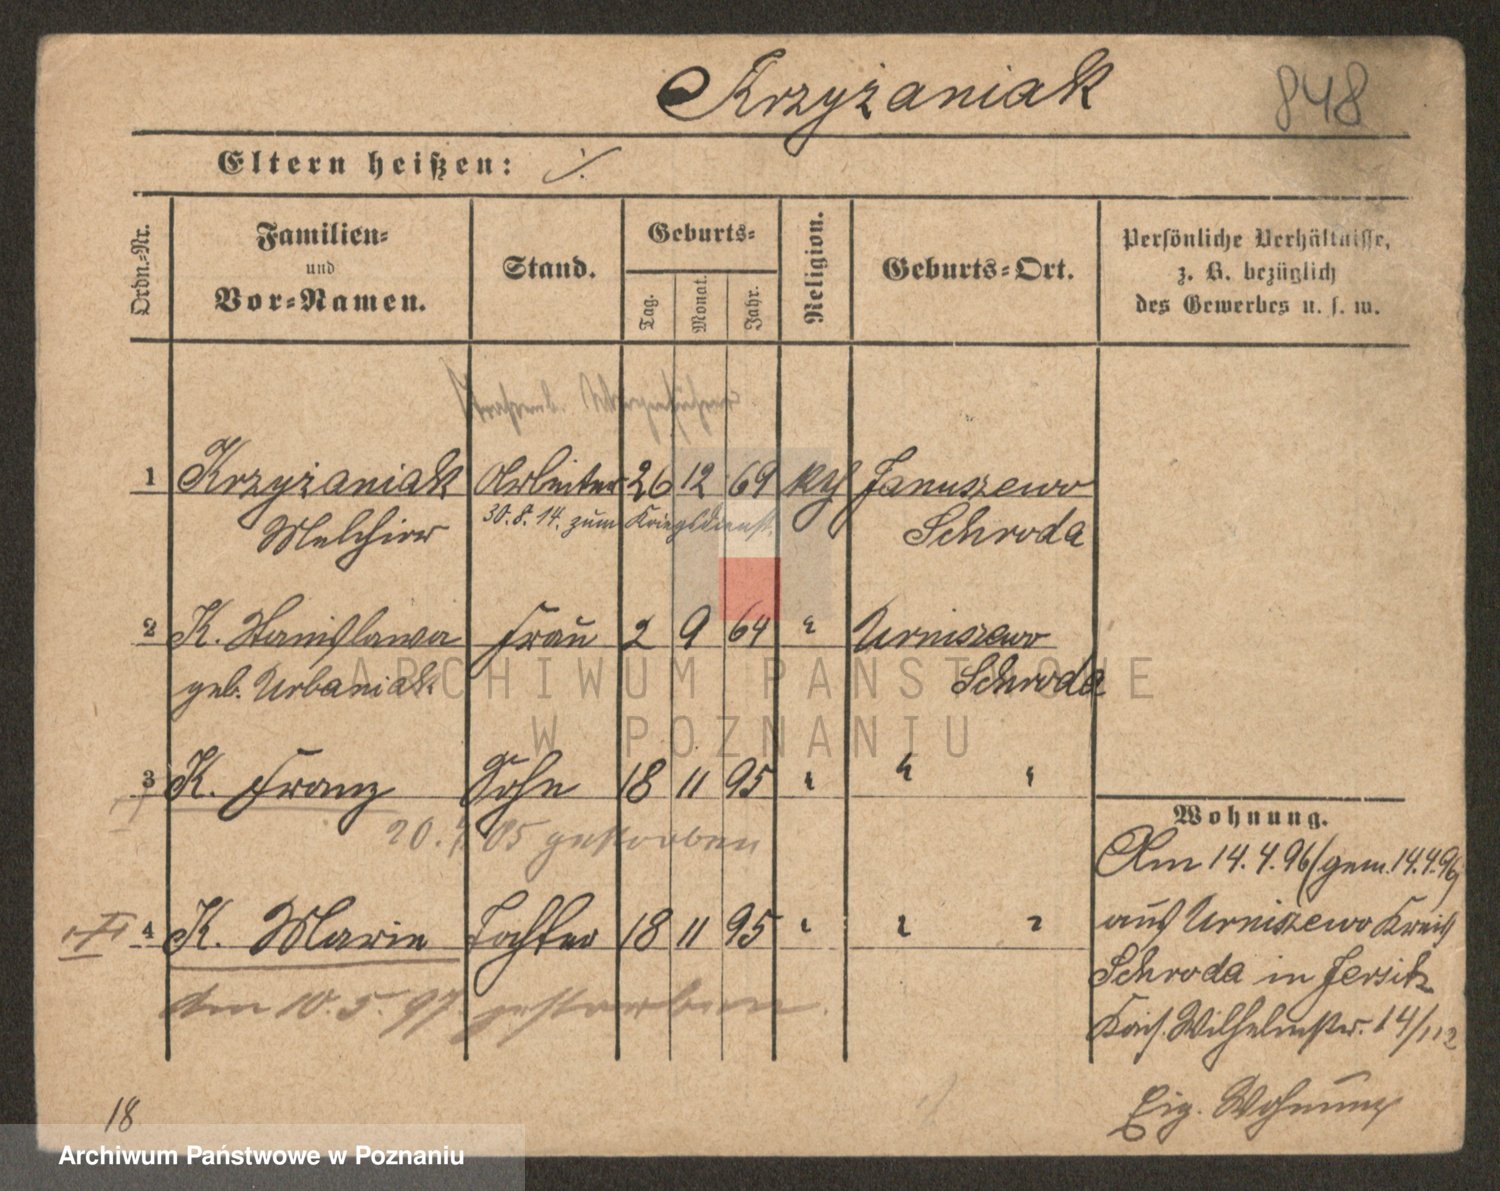 Krzyżaniak
848
Eltern heißen: ./.
Ordn.-Nr.
Familien-
und
Vor-Namen.
Stand.
Geburts-
Tag.
Monat.
Jahr.
Religion.
Geburts-Ort.
Persönliche Verhältnisse,
z. B. bezüglich
des Gewerbes u. s. w.
1 Krzyżaniak Arbeiter 26 12 69 kth Januszewo
Melchior 30.8.14. zum Kriegsdienst. Schroda
2 K. Stanislawa Frau 2 9 64 " Urniszewo
geb. Urbaniak Schroda
3 K. Franz Sohn 18 11 95 " " "
05 gestorben
4 K. Marie Tochter 18 11 95 " " "
den 10.5.97. gestorben.
Wohnung.
Am 14.4.96 (gem. 14.4.96)
aus Urniszewo Kreis
Schroda in Jersitz
Kais. Wilhelmstr. 14/
Eig. Wohnung
18
ARCHIWUM PAŃSTWOWE
W POZNANIU
Archiwum Państwowe w Poznaniu